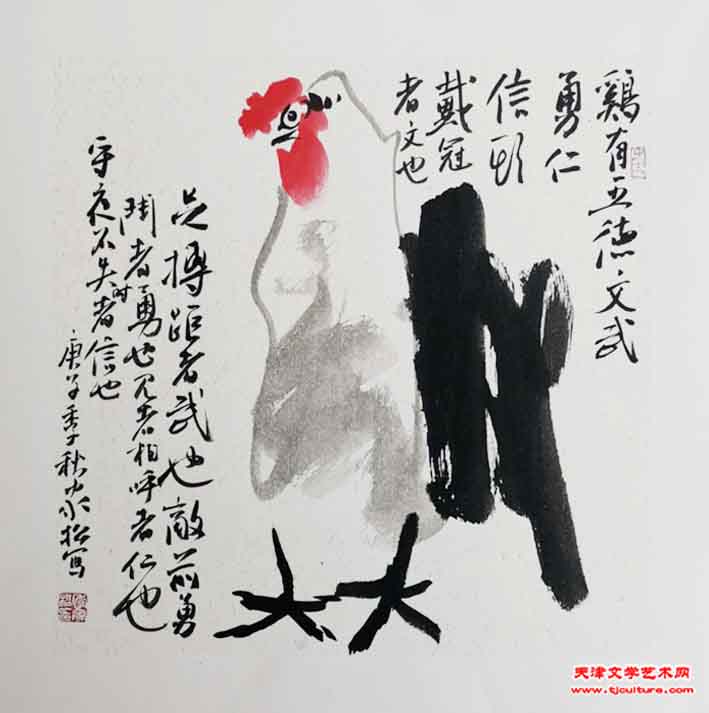 鷄有五德文武
勇仁
信頭
戴冠
者文也
足搏距者武也敵前勇
鬥者勇也见者相呼者仁也
守夜不失时者信也
庚子季秋松寫
天津文学艺术网
www.tjculture.com